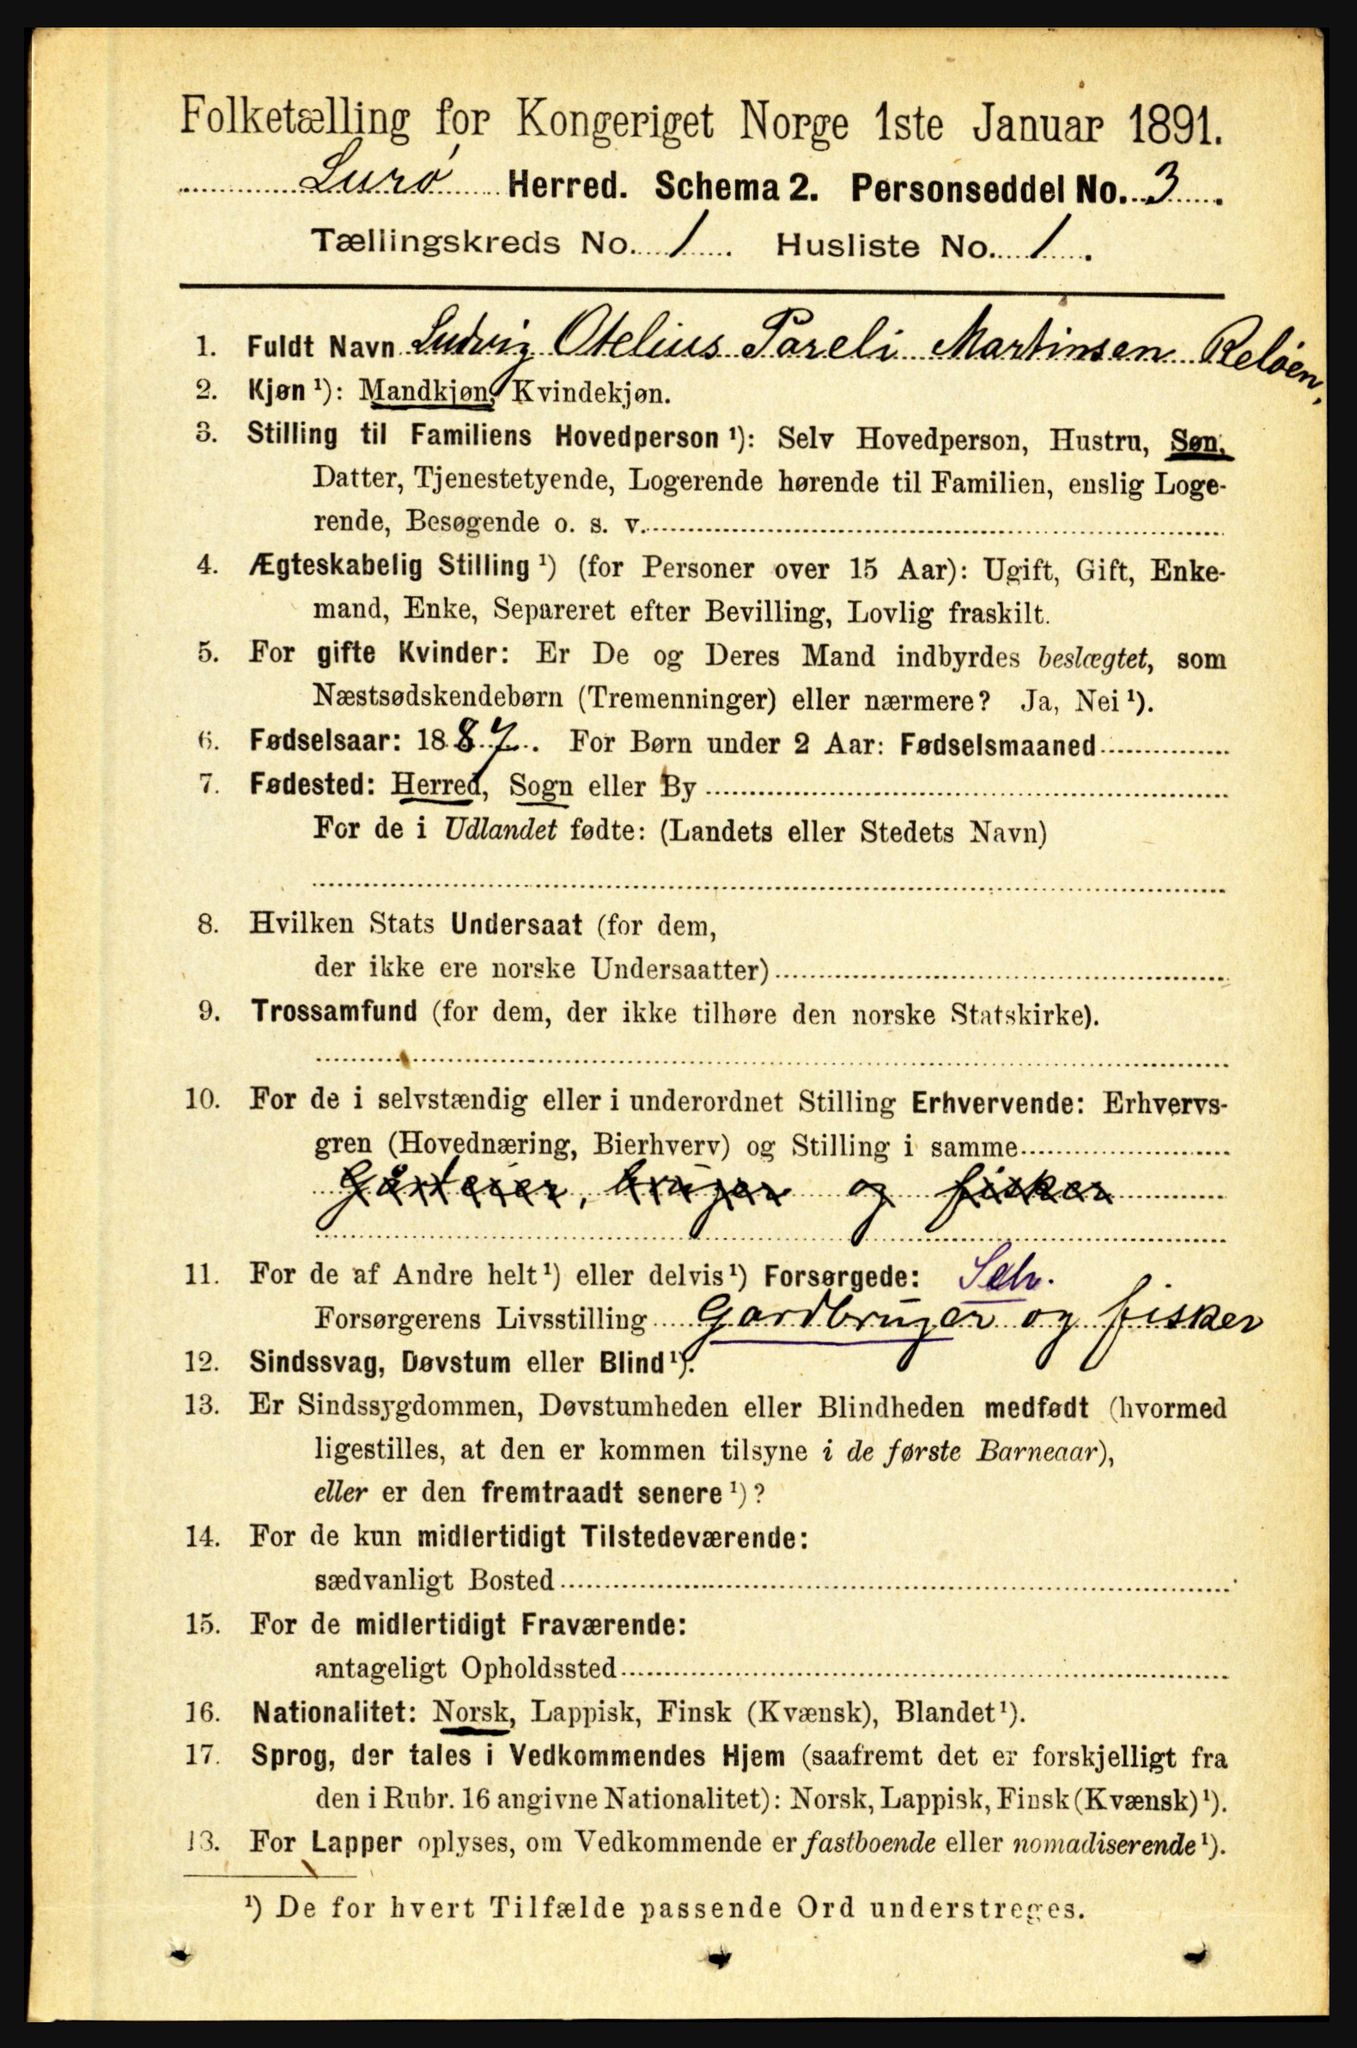 Folketælling for Kongeriget Norge 1ste Januar 1891.
Lurø Herred. Schema 2. Personseddel No. 3.
Tællingskreds No. 1. Husliste No. 1.
1. Fuldt Navn Ludvig Otelius Pareli Martinsen Reløen,
2. Kjøn ¹): Mandkjøn, Kvindekjøn.
3. Stilling til Familiens Hovedperson ¹): Selv Hovedperson, Hustru, Søn,
Datter, Tjenestetyende, Logerende hørende til Familien, enslig Loge-
rende, Besøgende o. s. v.
4. Ægteskabelig Stilling ¹) (for Personer over 15 Aar): Ugift, Gift, Enke-
mand, Enke, Separeret efter Bevilling, Lovlig fraskilt.
5. For gifte Kvinder: Er De og Deres Mand indbyrdes beslægtet, som
Næstsødskendebørn (Tremenninger) eller nærmere? Ja, Nei ¹).
6. Fødselsaar: 1887. For Børn under 2 Aar: Fødselsmaaned
7. Fødested: Herred, Sogn eller By
For de i Udlandet fødte: (Landets eller Stedets Navn)
8. Hvilken Stats Undersaat (for dem,
der ikke ere norske Undersaatter)
9. Trossamfund (for dem, der ikke tilhøre den norske Statskirke).
10. For de i selvstændig eller i underordnet Stilling Erhvervende: Erhvervs-
gren (Hovednæring, Bierhverv) og Stilling i samme
Gårdeier, bruger og fisker
11. For de af Andre helt ¹) eller delvis ¹) Forsørgede: Selv.
Forsørgerens Livsstilling Gardbruger og fisker
12. Sindssvag, Døvstum eller Blind ¹).
13. Er Sindssygdommen, Døvstumheden eller Blindheden medfødt (hvormed
ligestilles, at den er kommen tilsyne i de første Barneaar),
eller er den fremtraadt senere ¹)?
14. For de kun midlertidigt Tilstedeværende:
sædvanligt Bosted
15. For de midlertidigt Fraværende:
antageligt Opholdssted
16. Nationalitet: Norsk, Lappisk, Finsk (Kvænsk), Blandet ¹).
17. Sprog, der tales i Vedkommendes Hjem (saafremt det er forskjelligt fra
den i Rubr. 16 angivne Nationalitet): Norsk, Lappisk, Finsk (Kvænsk) ¹).
18. For Lapper oplyses, om Vedkommende er fastboende eller nomadiserende ¹).
¹) De for hvert Tilfælde passende Ord understreges.